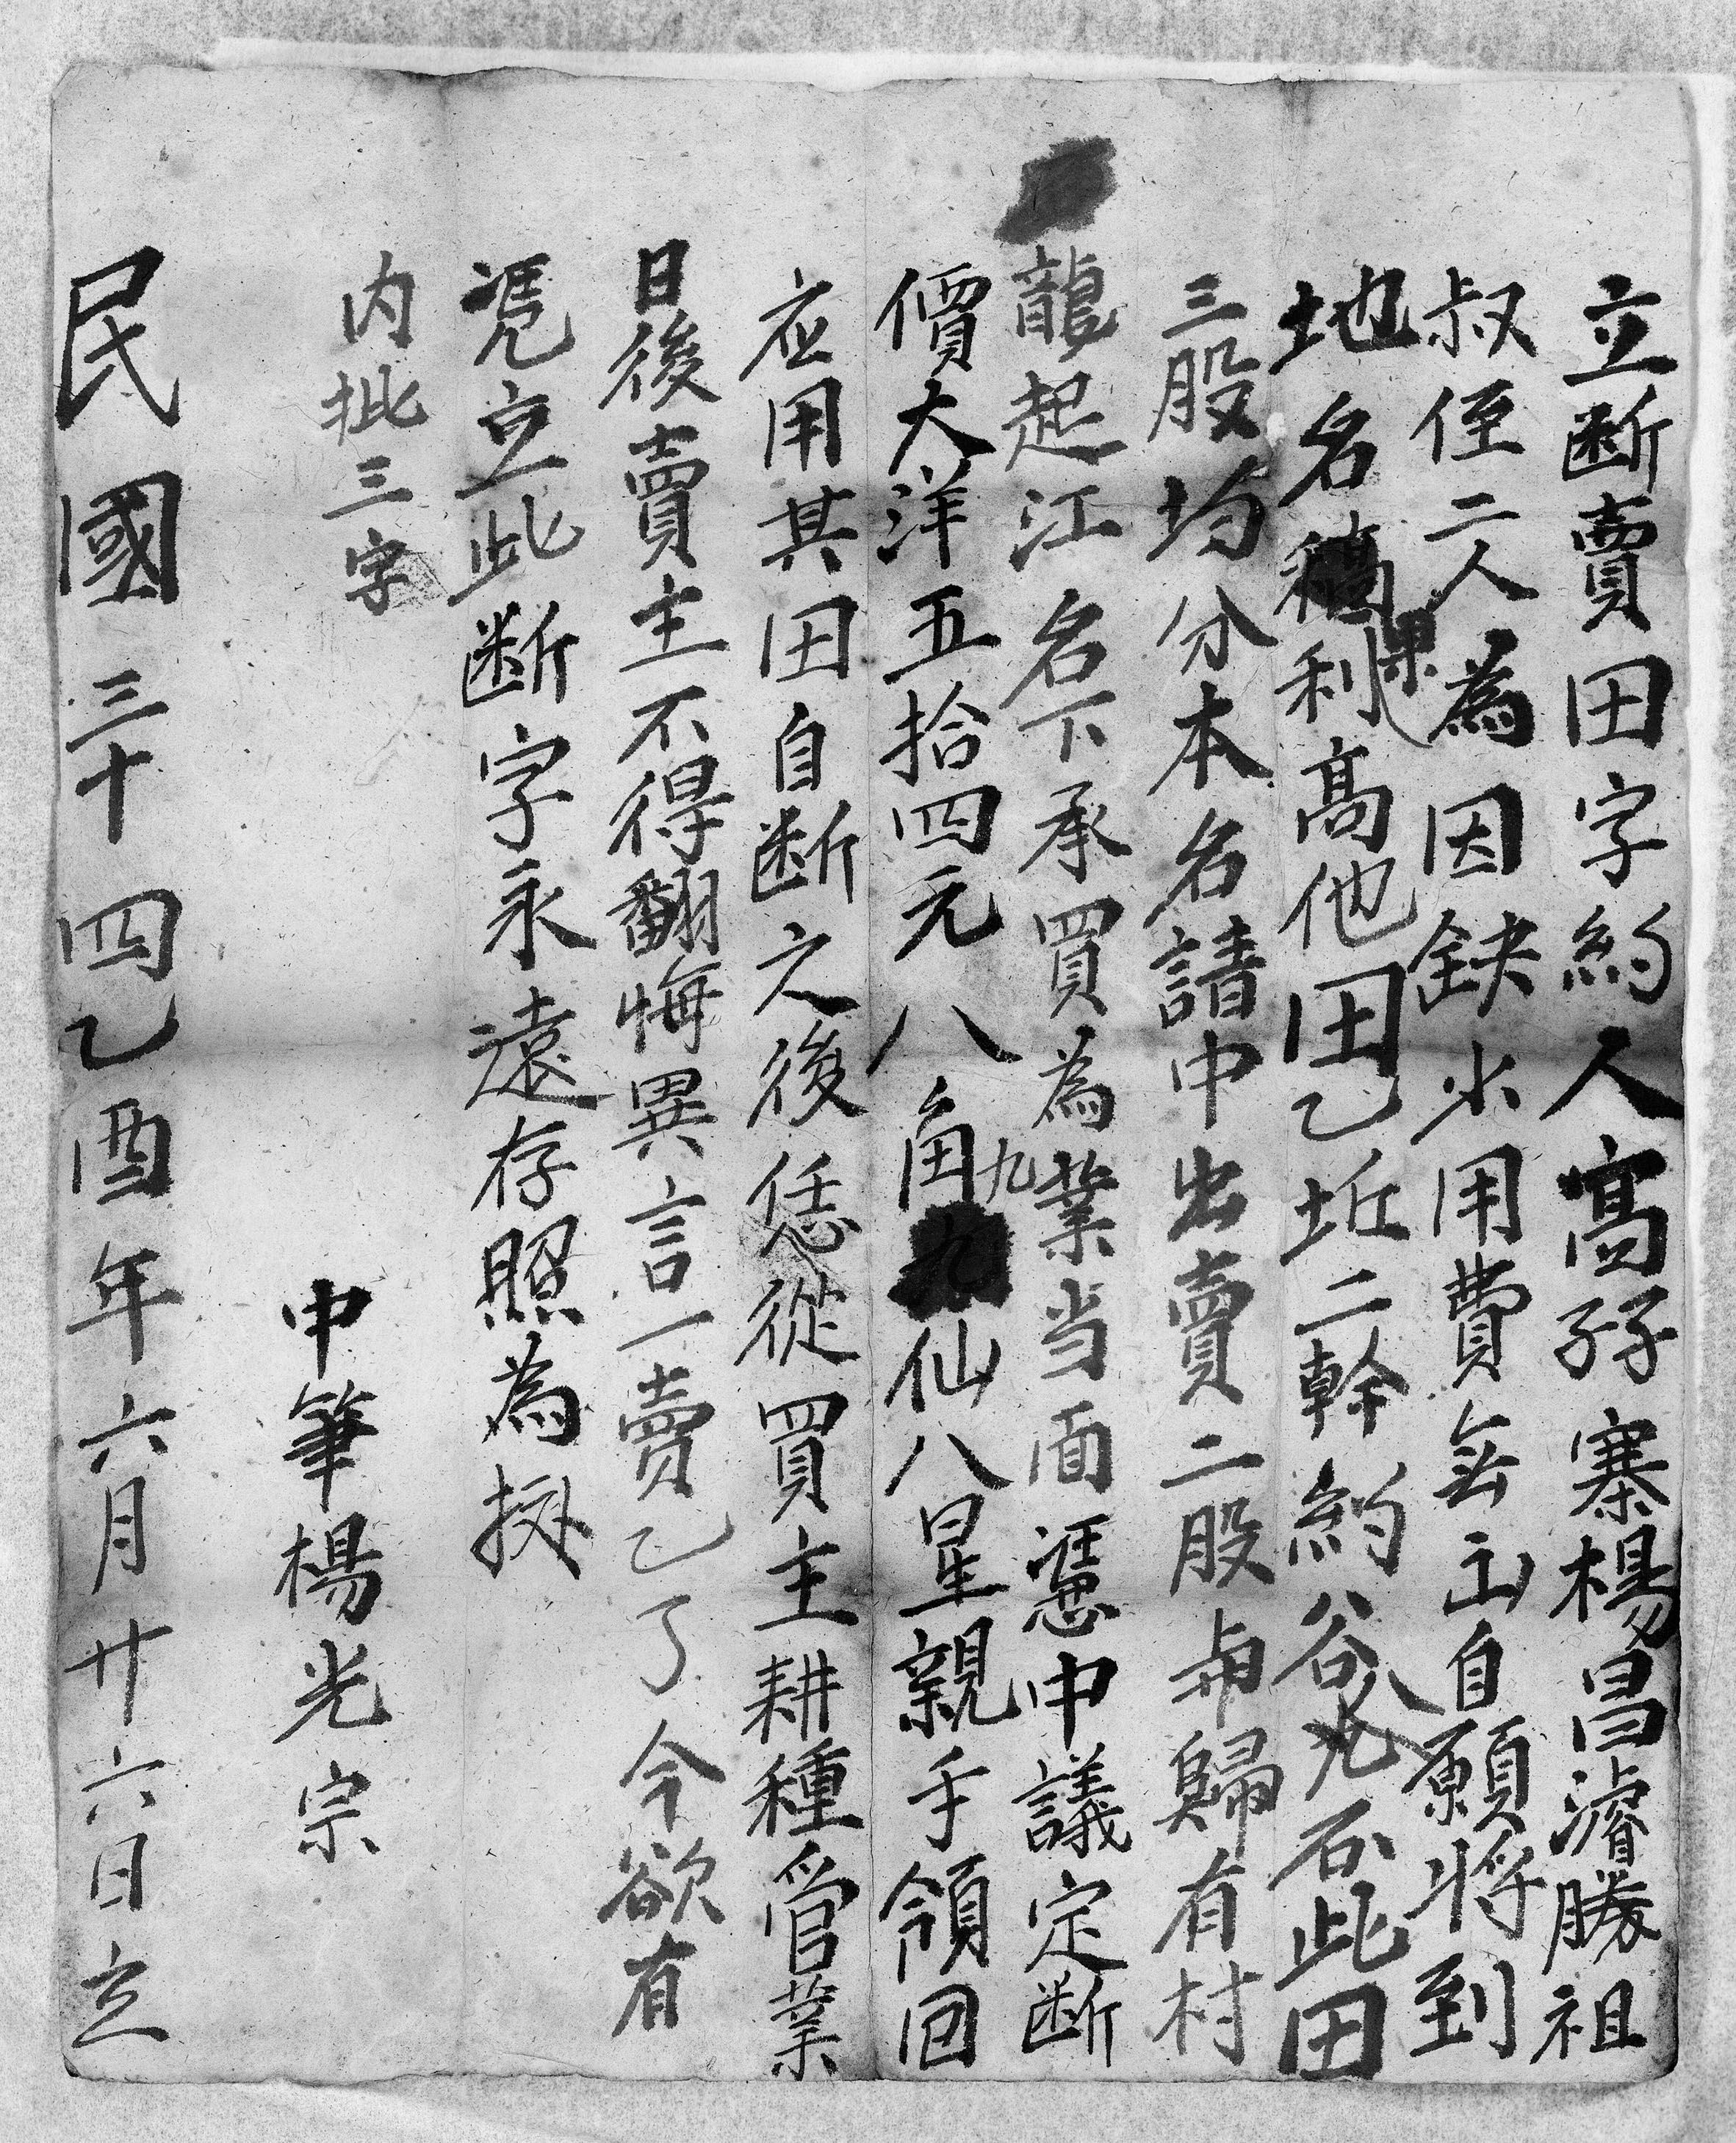 立断賣田字約人髙孖寨楊昌濬勝祖
叔侄二人為因缺少用費無出自願将到
地名利果髙他田乙坵二幹約谷八石此田
三股均分本名請中出賣二股与歸有村
龍起江名下承買為業当面憑中議定断
價大洋五拾四元八角九仙八星親手領回
应用其田自断之後恁從買主耕種管業
日後賣主不得翻悔異言一賣乙了今欲有
凴立此断字永遠存照為拠
内批三字
中筆楊光宗
民國三十四乙酉年六月廿六日立